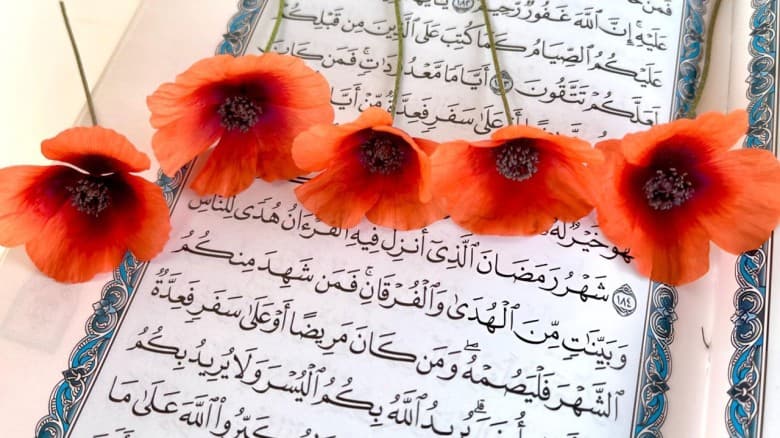 فَمَنْ
عَلَيْهِ إِنَّ ٱللَّهَ غَفُورٌ رَّحِيمٌ ١٨٢
عَلَيْكُمُ ٱلصِّيَامُ كَمَا كُتِبَ عَلَى ٱلَّذِينَ مِن قَبْلِكُمْ
لَعَلَّكُمْ تَتَّقُونَ ١٨٣ أَيَّامًا مَّعْدُودَٰتٍۚ فَمَن كَانَ
أَوْ عَلَىٰ سَفَرٍ فَعِدَّةٌ مِّنْ
هُوَ خَيْرٌ لَّهُ
١٨٤ شَهْرُ رَمَضَانَ ٱلَّذِىٓ أُنزِلَ فِيهِ ٱلْقُرْءَانُ هُدًى لِّلنَّاسِ
وَبَيِّنَٰتٍ مِّنَ ٱلْهُدَىٰ وَٱلْفُرْقَانِۚ فَمَن شَهِدَ مِنكُمُ
ٱلشَّهْرَ فَلْيَصُمْهُۖ وَمَن كَانَ مَرِيضًا أَوْ عَلَىٰ سَفَرٍ فَعِدَّةٌ
أُخَرَۗ يُرِيدُ ٱللَّهُ بِكُمُ ٱلْيُسْرَ وَلَا يُرِيدُ بِكُمُ
ٱللَّهَ عَلَىٰ مَا